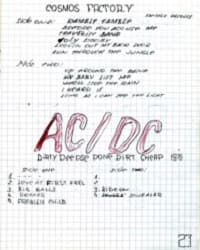 COSMOS FACTORY
SIDE ONE: RAMBLE TAMBLE
BEFORE YOU ACCUSE ME
TRAVELIN' BAND
OOBY DOOBY
LOOKIN OUT MY BACK DOOR
RUN THROUGH THE JUNGLE
SIDE TWO:
UP AROUND THE BEND
MY BABY LEFT ME
WHO'LL STOP THE RAIN
I HEARD IT
LONG AS I CAN SEE THE LIGHT
AC/DC
DIRTY DEEDS DONE DIRT CHEAP
SIDE ONE: SIDE TWO:
1. ---
2. LOVE AT FIRST FEEL
3. BIG BALLS 3. RIDE ON
4. 4. SQUEALER
5. PROBLEM CHILD
23